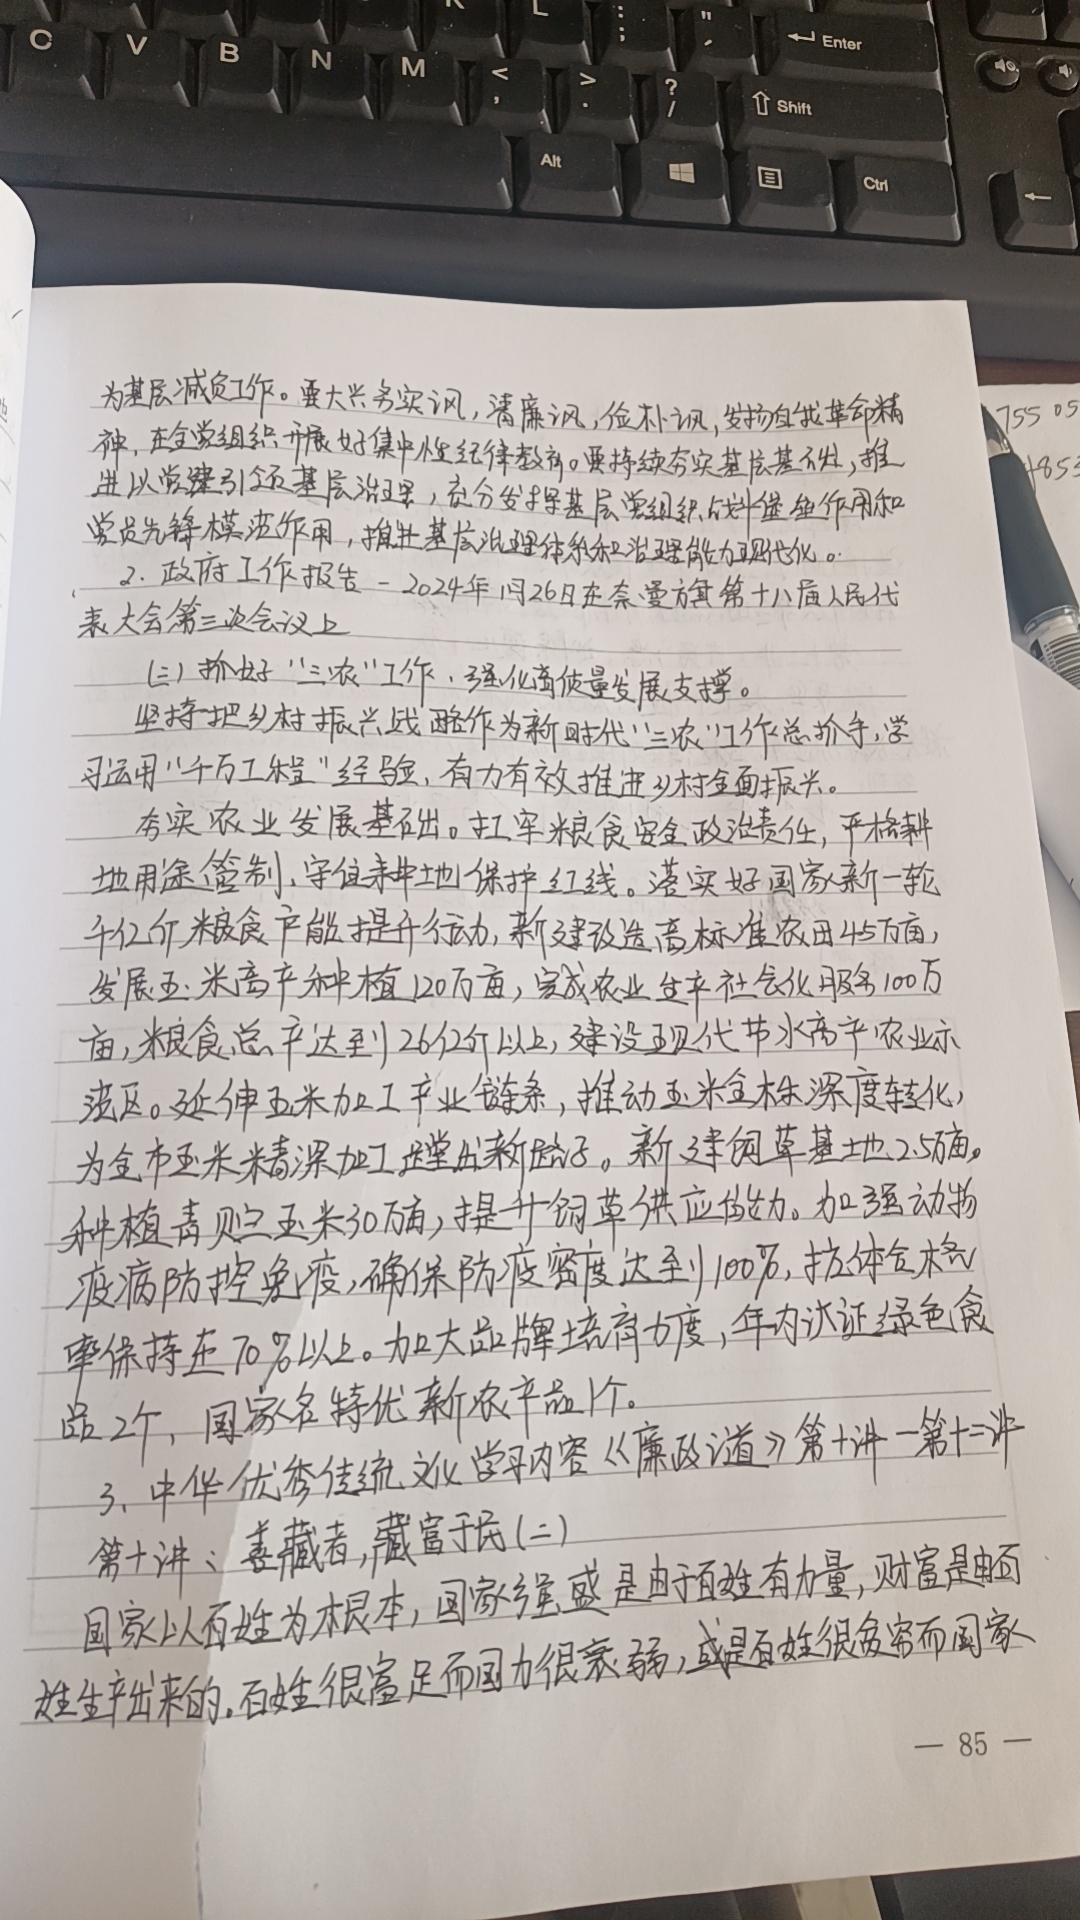 C V B N M K L : ; " ' < , > . ? / Enter
Shift
Alt Ctrl
755 05
485
为基层减负工作。要大兴务实之风,清廉之风,俭朴之风,发扬自我革命精
神,在全党组织开展好集中性纪律教育。要持续夯实基层基础,推
进以党建引领基层治理,充分发挥基层党组织战斗堡垒作用和
党员先锋模范作用,推进基层治理体系和治理能力现代化。
2. 政府工作报告-2024年1月26日在奈曼旗第十八届人民代
表大会第三次会议上
(三)抓好“三农”工作、强化高质量发展支撑。
坚持把乡村振兴战略作为新时代“三农”工作总抓手,学
习运用“千万工程”经验,有力有效推进乡村全面振兴。
夯实农业发展基础。扛牢粮食安全政治责任,严格耕
地用途管制、守住耕地保护红线。落实好国家新一轮
千亿斤粮食产能提升行动,新建改造高标准农田45万亩,
发展玉米高产种植120万亩,完成农业生产社会化服务100万
亩,粮食总产达到26亿斤以上,建设现代节水高产农业示
范区。延伸玉米加工产业链条,推动玉米全株深度转化,
为全市玉米精深加工趟出新路子。新建饲草基地2.5万亩。
种植青贮玉米30万亩,提升饲草供应能力。加强动物
疫病防控免疫,确保防疫密度达到100%,抗体合格
率保持在70%以上。加大品牌培育力度,年内认证绿色食
品2个,国家名特优新农产品1个。
3、中华优秀传统文化学习内容《廉政之道》第十讲-第十二讲
第十讲:善藏者,藏富于民(二)
国家以百姓为根本,国家强盛是由于百姓有力量,财富是由百
姓生产出来的。百姓很富足而国力很衰弱,或是百姓很贫穷而国家
— 85 —